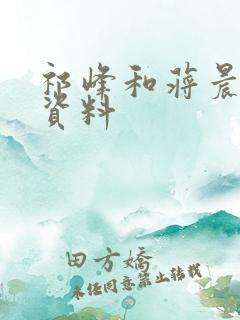 祁峰和蒋晨
資料
田方嬌
未经同意禁止转载